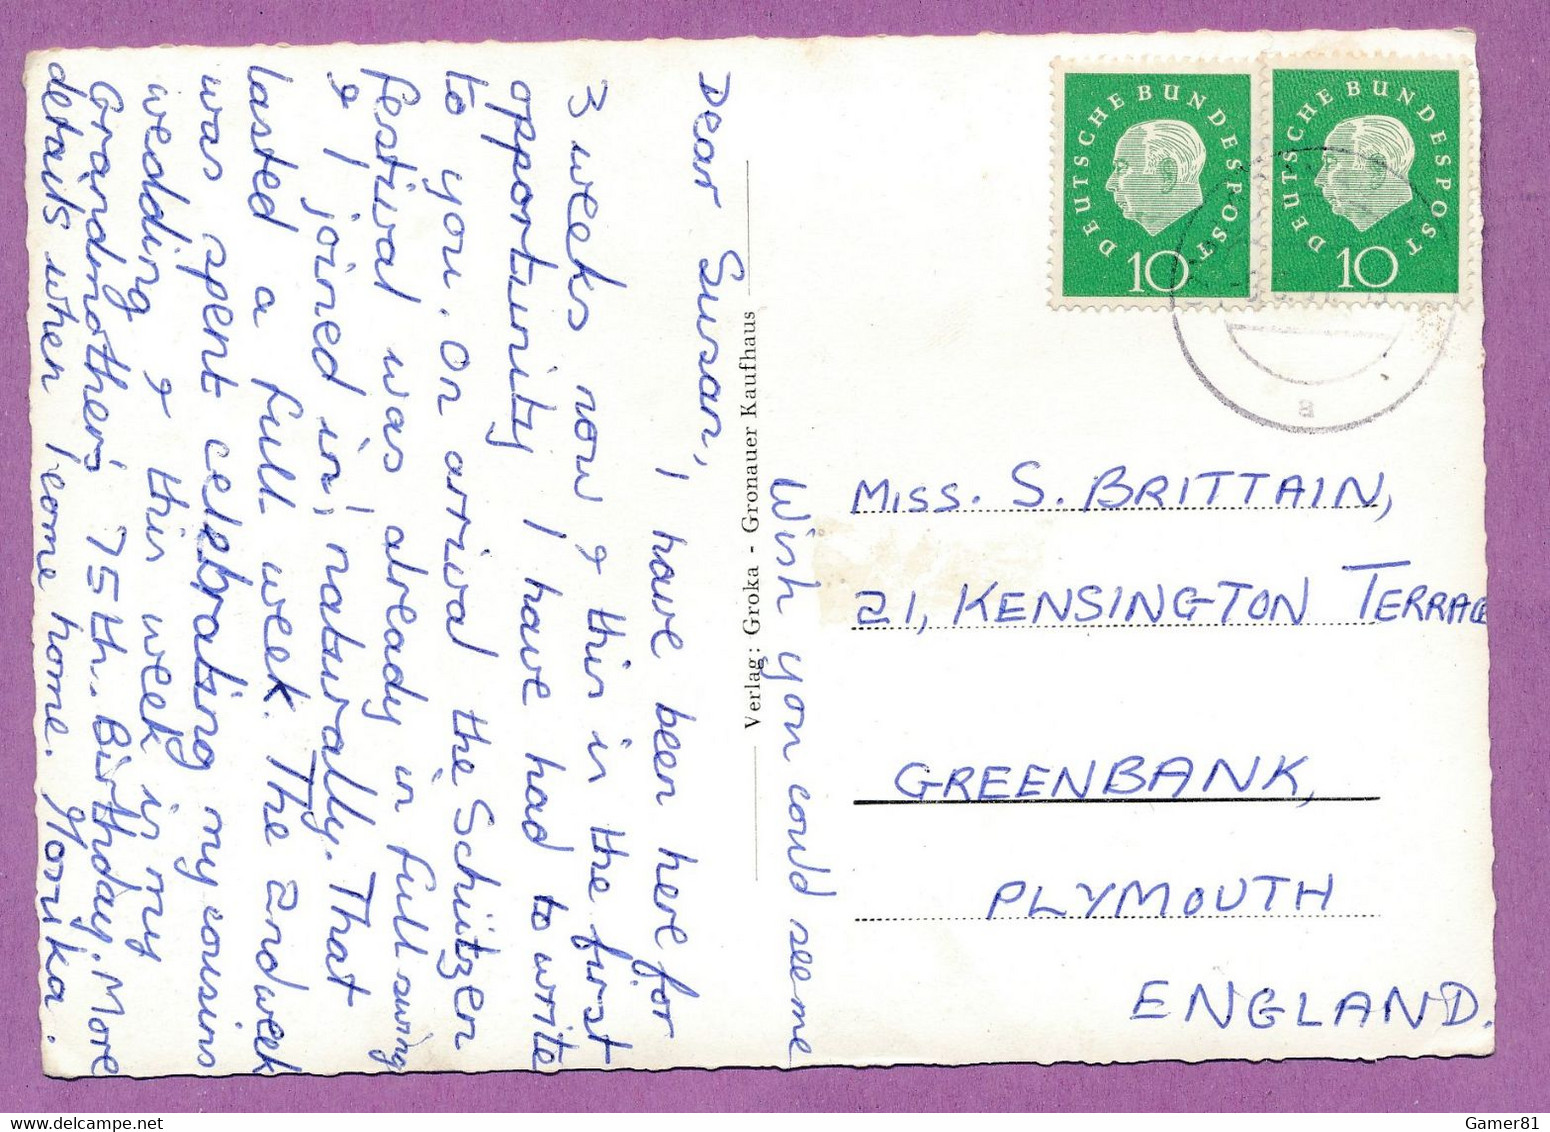 Dear Susan,
I have been here for
3 weeks now & this is the first
opportunity I have had to write
to you. On arrival the Schützen
festival was already in full swing
& I joined in, naturally. That
lasted a full week. The 2nd week
was spent celebrating my cousins
wedding & this week is my
Grandmother's 75th. Birthday. More
details when I come home.
Wish you could see me
Verlag: Groka - Gronauer Kaufhaus
DEUTSCHE BUNDESPOST
10
DEUTSCHE BUNDESPOST
10
a
MISS. S. BRITTAIN,
21, KENSINGTON TERRACE
GREENBANK,
PLYMOUTH
ENGLAND.
Gamer81